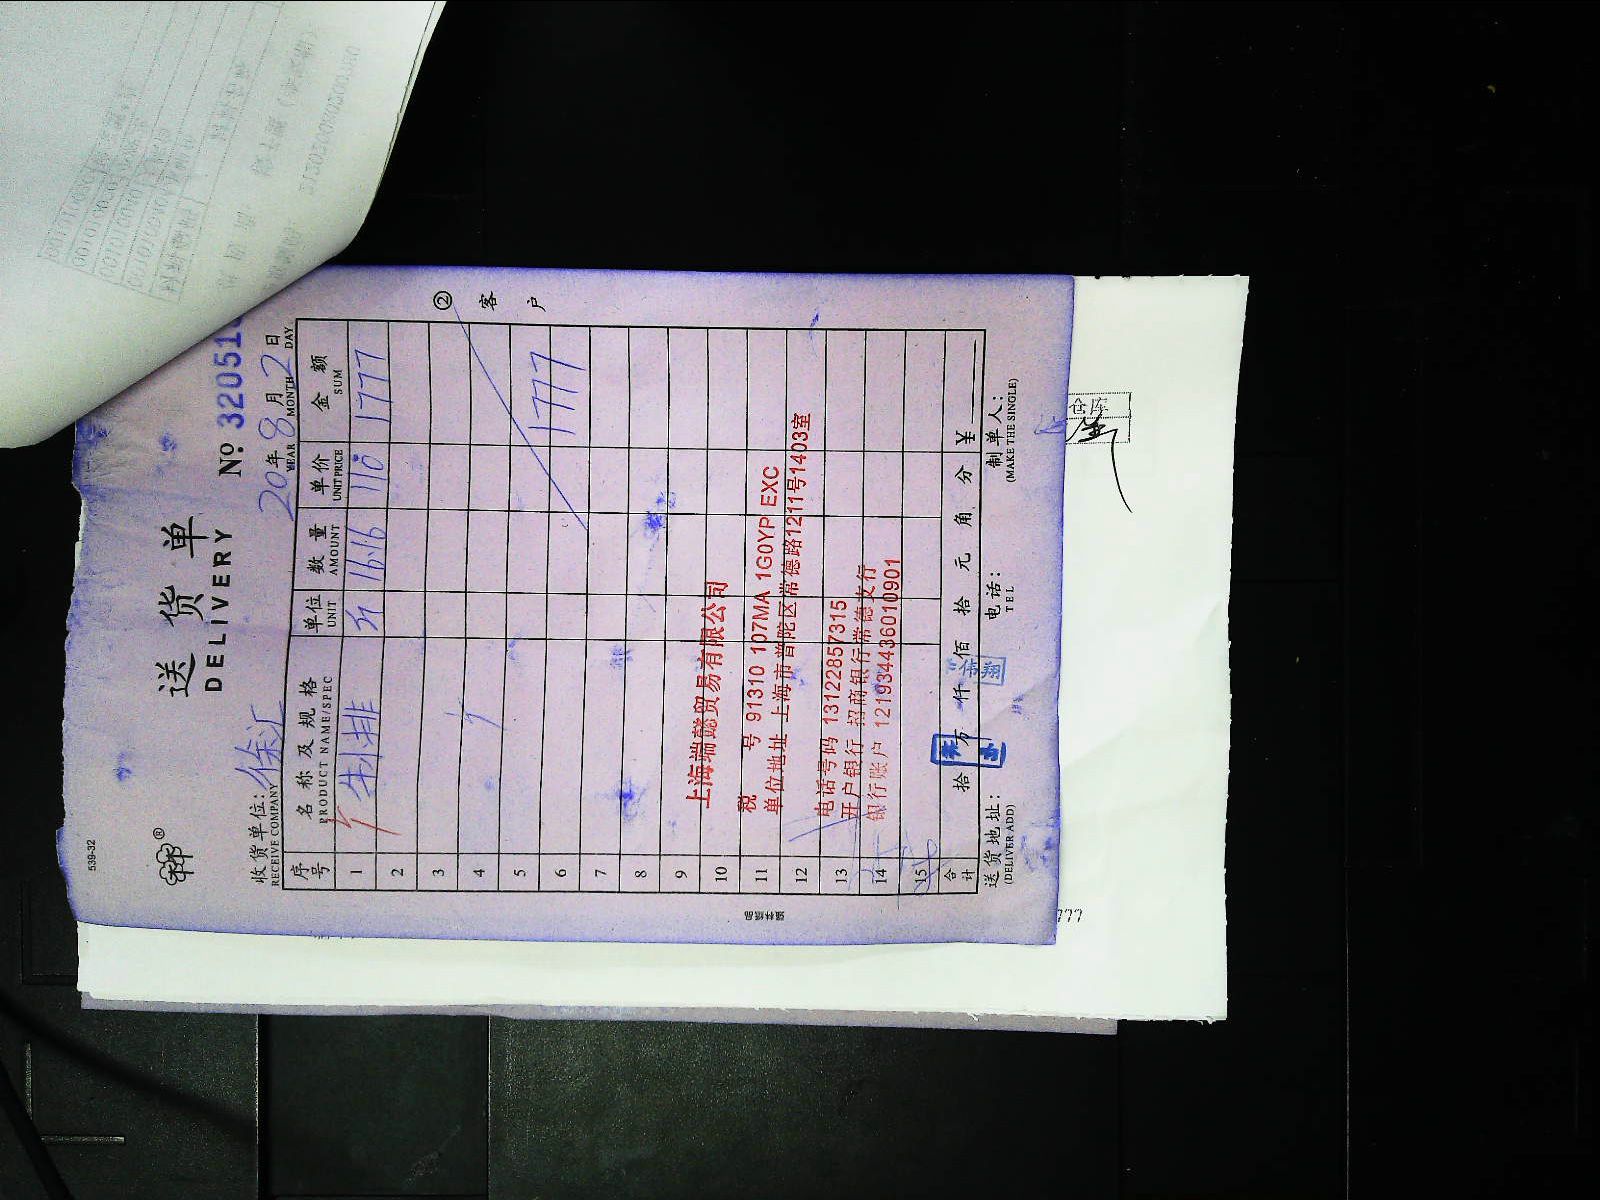 539-32
送货单
DELIVERY
№ 32051
收货单位：徐汇
RECEIVE COMPANY
20 年 8 月 2 日
YEAR MONTH DAY
序号 名称及规格 单位 数量 单价 金额
PRODUCT NAME/SPEC UNIT AMOUNT UNIT PRICE SUM
1 牛排 斤 16.16 110 1777
2
3
4
5
6 1777
7
8
9
10
11
12
13
14
15
② 客户
上海端懿贸易有限公司
税 号 91310 107MA 1G0YP EXC
单位地址 上海市普陀区常德路1211号1403室
电话号码 13122857315
开户银行 招商银行常德支行
银行账户 121934436010901
合计 拾 万 仟 佰 拾 元 角 分 ¥
伟翔
送货地址： 电话： 制单人：
(DELIVER ADD) TEL (MAKE THE SINGLE)